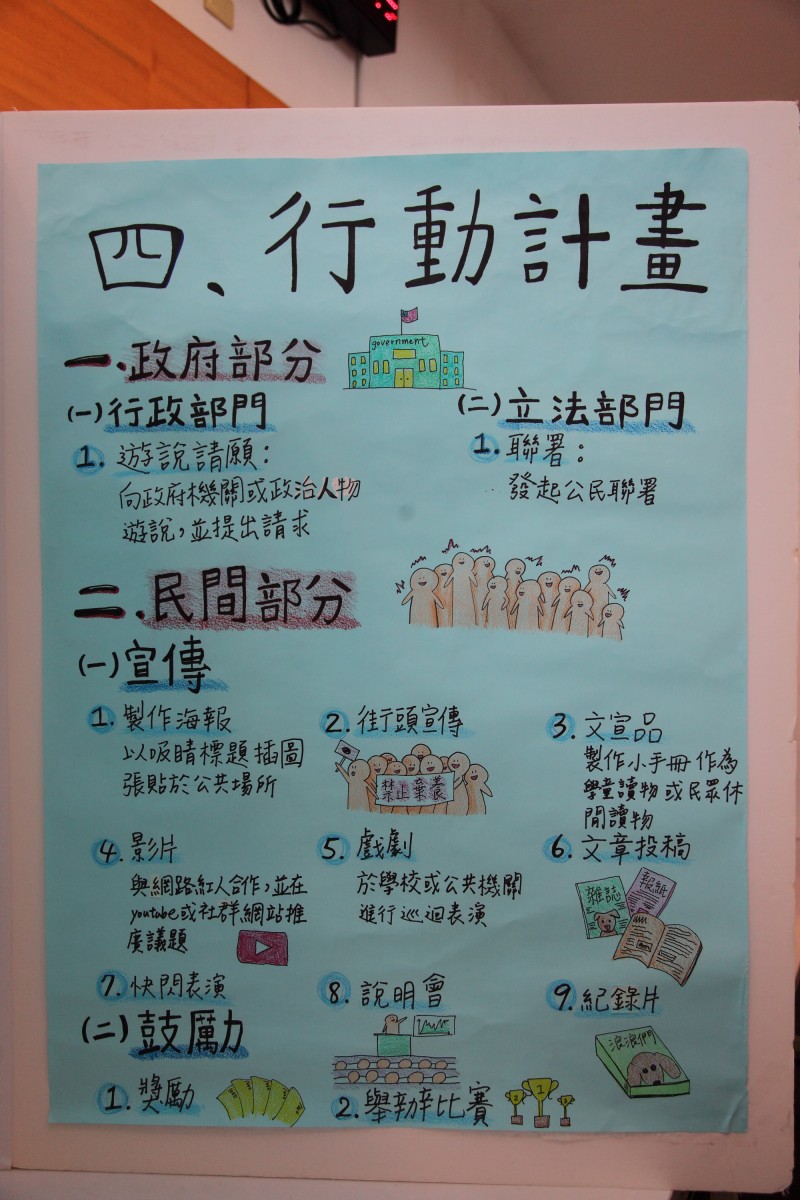 四、行動計畫
一、政府部分
government
(一)行政部門
1. 遊說請願：
向政府機關或政治人物
遊說，並提出請求
(二)立法部門
1. 聯署：
發起公民聯署
二、民間部分
(一)宣傳
1. 製作海報
以吸睛標題插圖
張貼於公共場所
2. 街頭宣傳
禁止棄養
3. 文宣品
製作小手冊作為
學童讀物或民眾休
閒讀物
4. 影片
與網路紅人合作，並在
youtube或社群網站推
廣議題
5. 戲劇
於學校或公共機關
進行巡迴表演
6. 文章投稿
雜誌
報紙
7. 快閃表演
8. 說明會
9. 紀錄片
浪浪們
(二)鼓厲力
1. 獎勵
2. 舉辦比賽
2
1
3